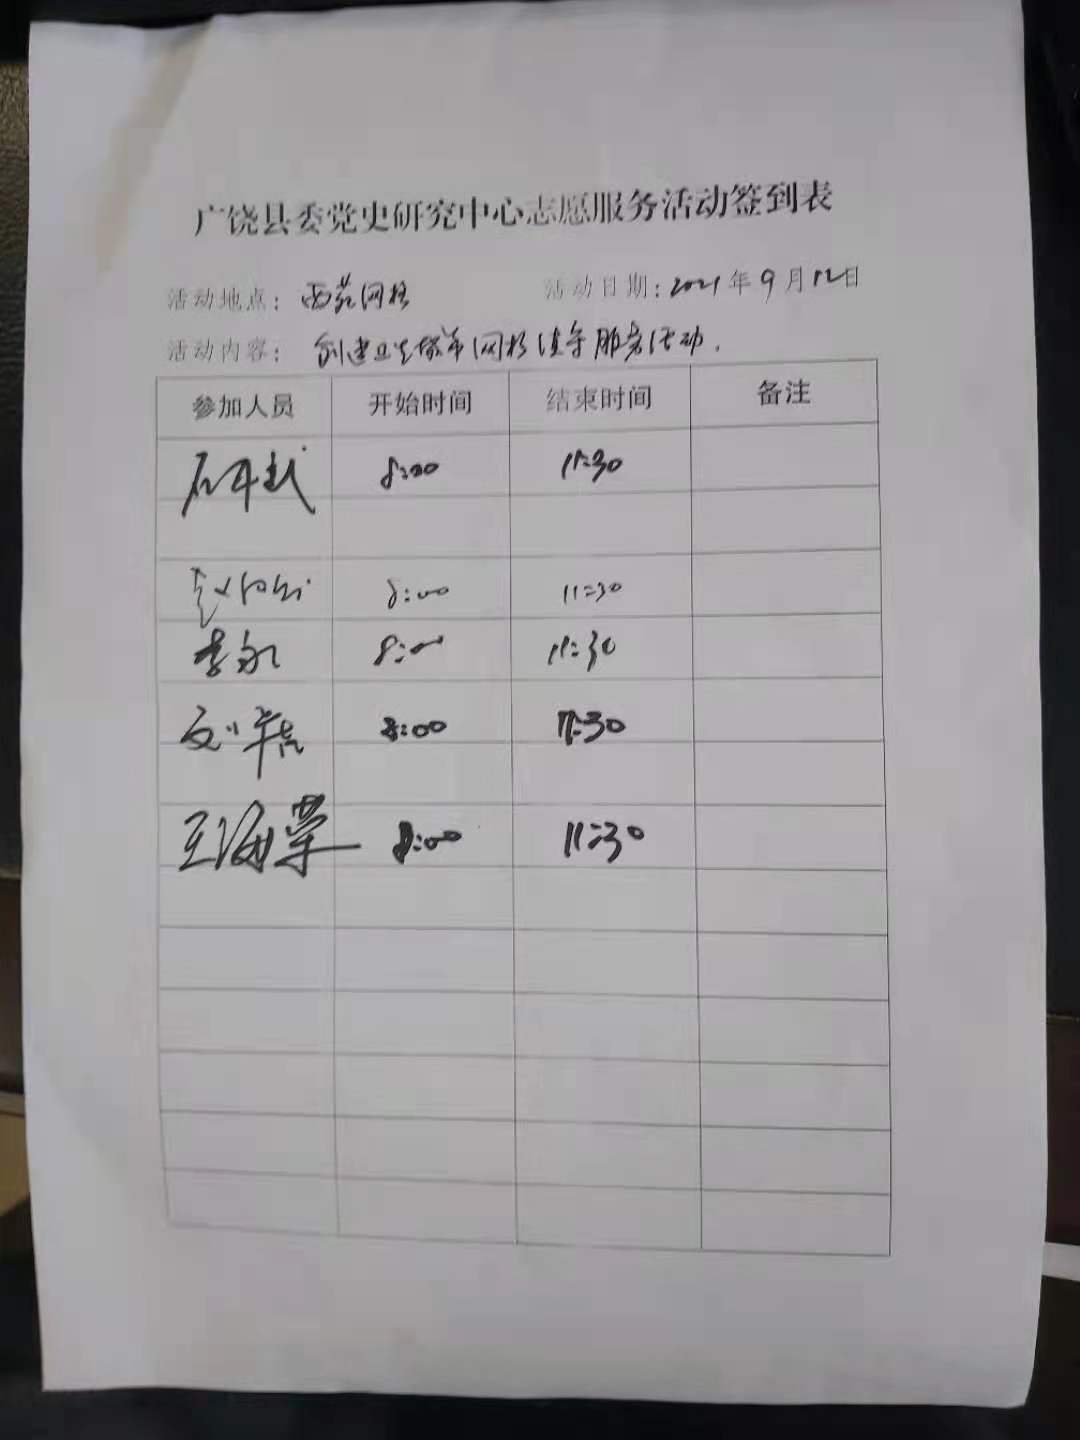 广饶县委党史研究中心志愿服务活动签到表
活动地点：西苑网格 活动日期：2021年9月12日
活动内容：创建卫生城市网格值守服务活动.
参加人员 开始时间 结束时间 备注
8:00 11:30
8:00 11:30
李永 8:00 11:30
刘 8:00 11:30
王海荣 8:00 11:30